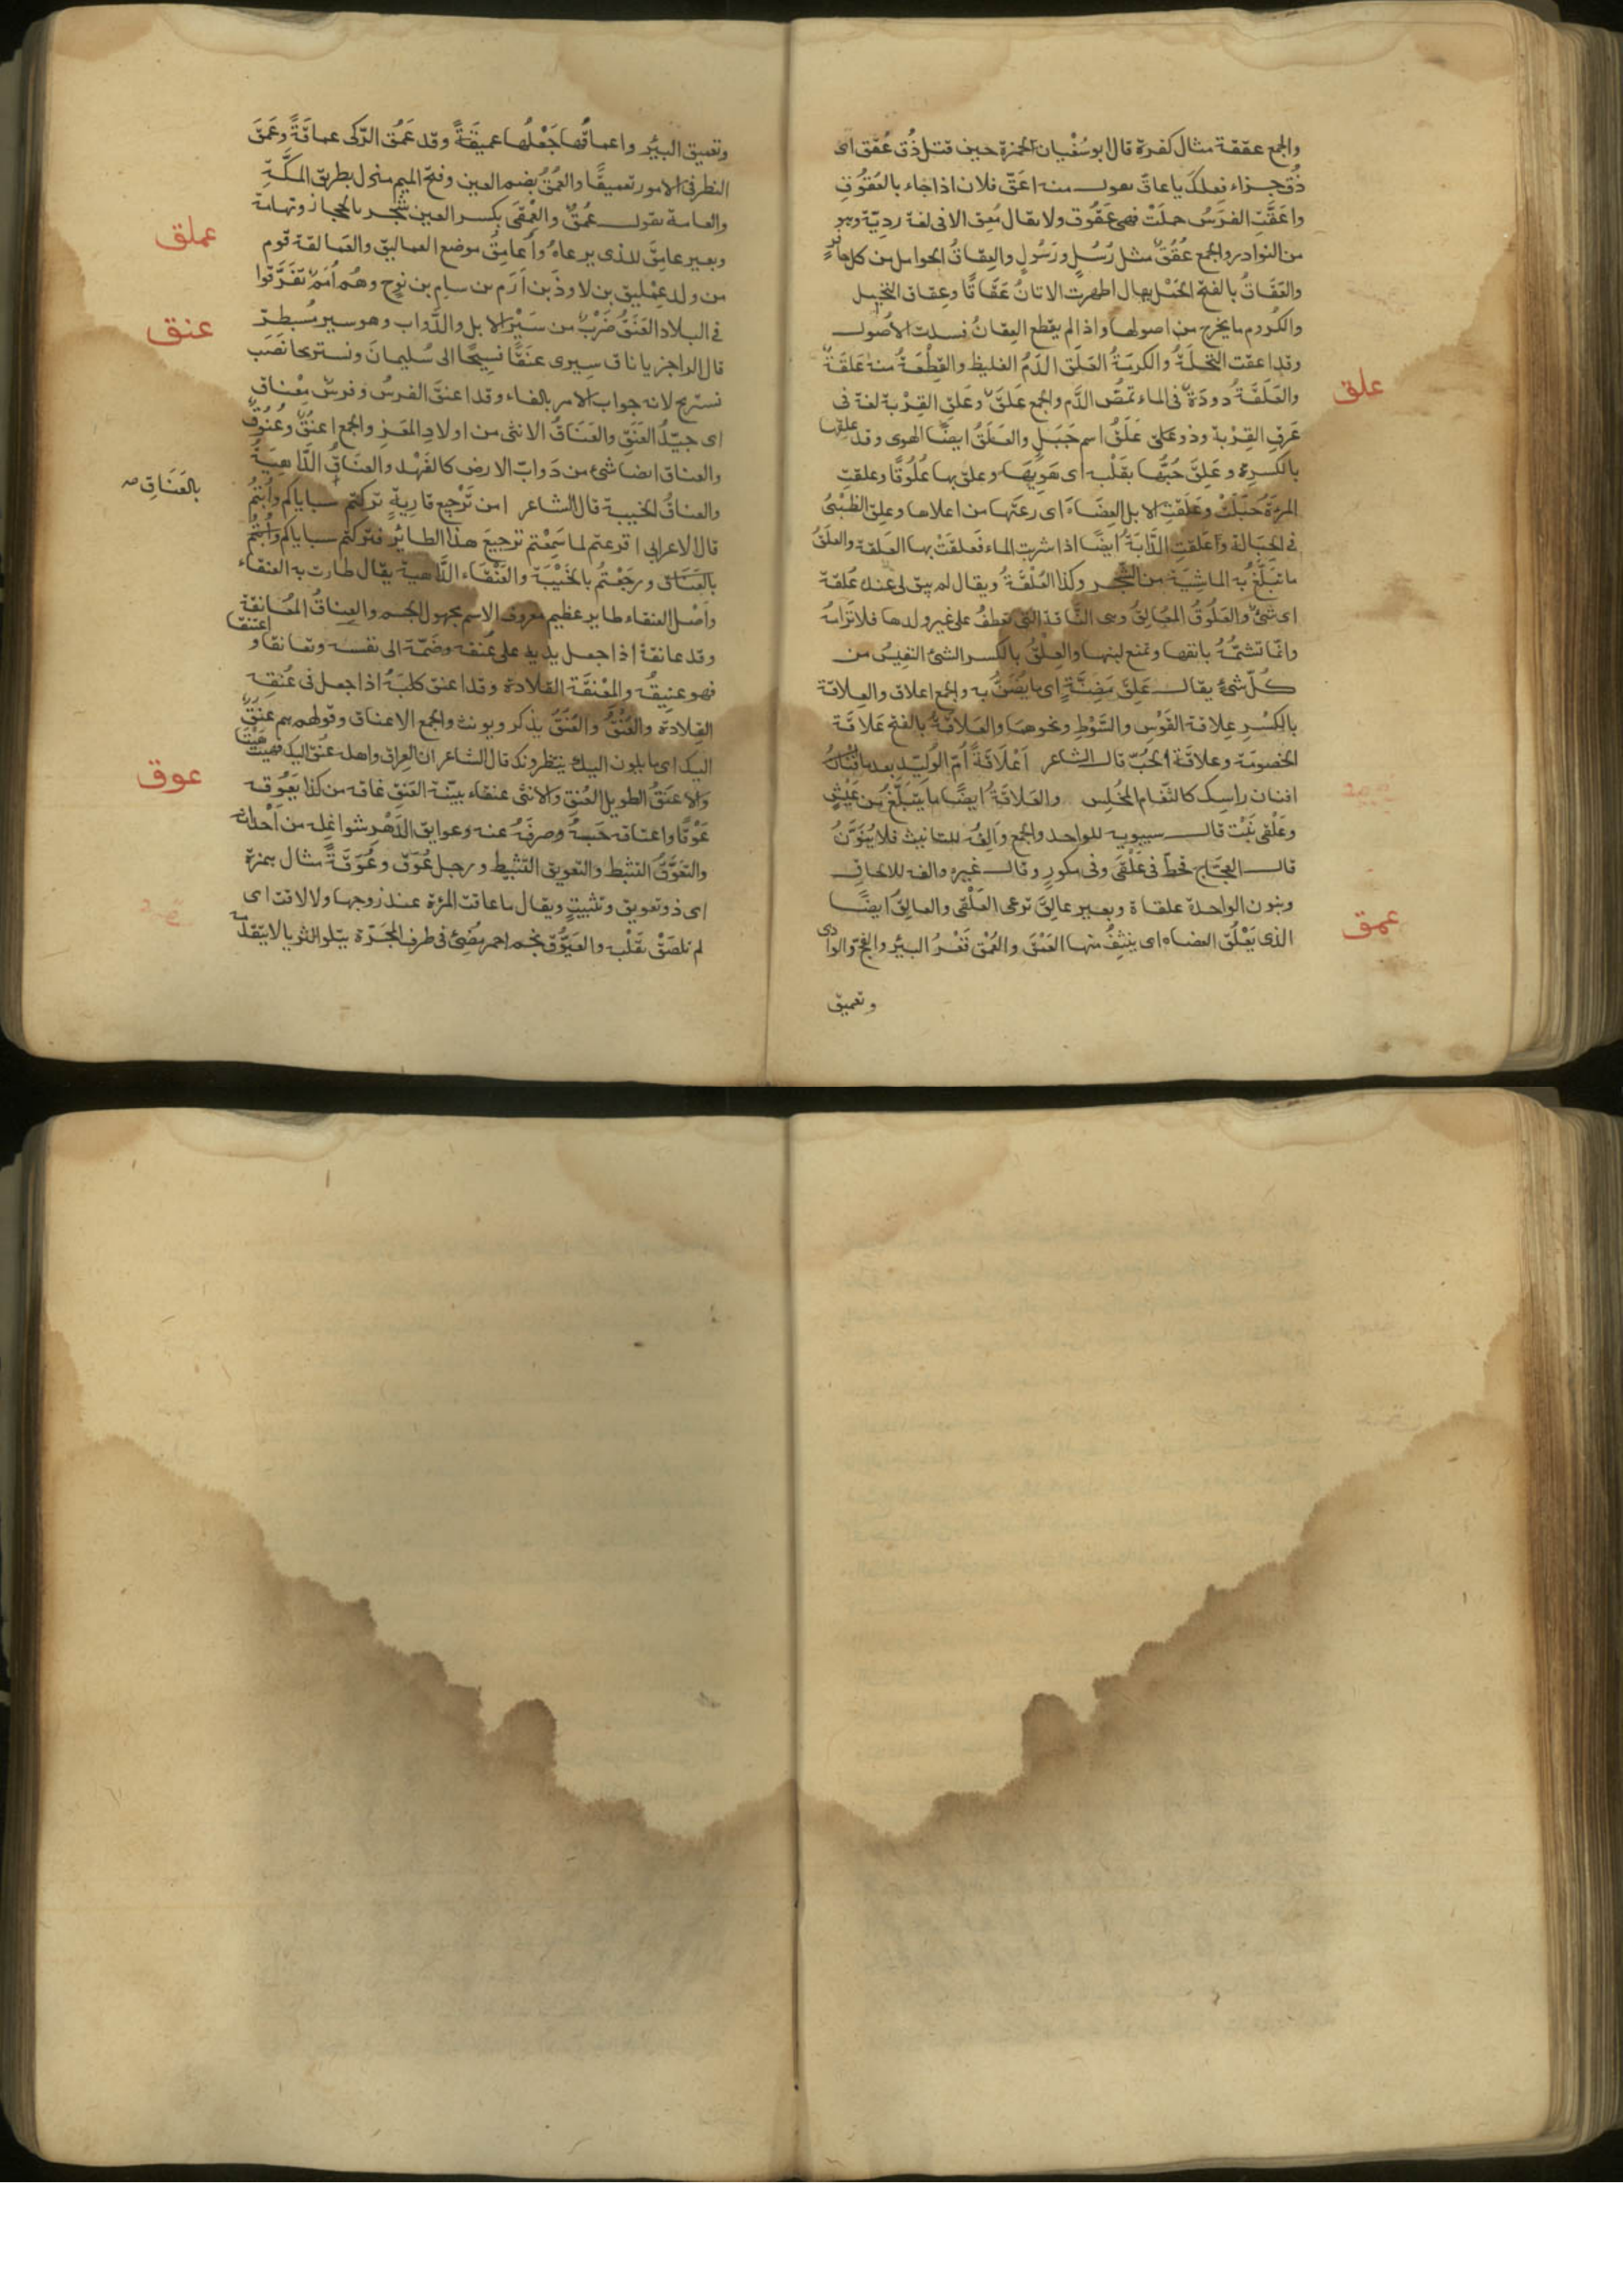 والجمع عققة مثال كفرة قال ابو سُفْيان لحمزة حين قتل ذُق عُقَق اى
ذُق جزاء فِعلك يا عاقّ يقول منه اعَقّ فلان اذا جاء بالعُقُوقِ
واعَقَّتِ الفَرَسُ حملَتْ فهى عَقُوق ولا يقال مُعِق الا فى لغة رديّة وهو
من النوادر والجمع عُقُقٌ مثل رُسُلٍ ورَسُولٍ والعِقاقُ الحوامل من كل حافرٍ
والعَقَاقُ بالفتح الحَمْل يقال اظهرت الاتانُ عَقَاقًا وعِقان النخيل
والكُروم ما يخرج من اصولها واذا لم يقطع العِقانُ فسدت الاصُول
وقد اعقت النخلَةُ والكرمَةُ العَلَق الدَّمُ الغليظ والقِطْعَةُ منه عَلَقَةٌ
علق
والعَلَقَةُ دودَةٌ فى الماء تمَصّ الدَّم والجمع عَلَقٌ وعَلَق القِرْبة لغة فى
عَرق القِرْبة وذو عَلَق عَلَقُ اسم جَبَلٍ والعَلَقُ ايضًا الهوى وقد علقها
بالكسرة وعَلِقَ حُبُّها بقَلْبه اى هَوِيَها وعلق بها عُلُوقًا وعلقتِ
المرءَةُ حُبّلَتْ وعَلَقَتِ الابل العِضَاهَ اى رعتها من اعلاها وعلِق الظبىُ
فى الحِبَالة وأعلقت الدَّابَةُ ايضًا اذا شربت الماء فعلقتْ بها العَلَقة والعلَقُ
ما تبَلَّغُ به الماشِيَة من الشجر وكذا العُلْقَةُ ويقال لم يبق لى عندك عُلقة
اى شئٌ والعَلُوقُ المعَالِقُ وهى النَّاقة التى تعطِفُ على غير ولدها فلا ترَامُهُ
وانّما تشمُّهُ بانفها وتمنع لبنها والعِلْقُ بالكسر الشئ النفيس من
كلّ شئٍ يقال عِلقُ مَضِنَّةٍ اى ما يُضَنُّ به والجمع اعلاق والعِلاقة
بالكسْر عِلاقة القَوْس والسَّوْطِ ونحوهما والعَلاقةُ بالفتح عَلاقَة
الخصومَة وعلاقَة الحُبّ قال الشاعر أعَلَاقَةً أمّ الوُليّدِ بعد ما
افنان راسِك كالثغَام المُخلِس والعَلاقَةُ ايضًا ما يتبَلّغ من عَيْشٍ
وعَلْقى نَبْت قال سيبويه للواحد والجمع وألِفُه للتانيث فلا يُنَوَّنُ
قال العجَّاج فحَطّ فى عَلْقَى وفى مكورٍ وقال غيره والفه للالحاق
وينون الواحدة علقاة وبعير عالِقٌ ترعى العَلْقى والعالِقُ ايضًا
الذى يَعْلُق العضاه اى ينتِفُ منها العَمْقُ والعُمْق قَعْرُ البئر والفَجّ والوادى
عمق
وتعميق
وتعميق البئر واعماقُها جَعْلُها عميقَةً وقد عَمُق الرّكى عماقَةً وعَمَّقَ
النظر فى الامور تعميقًا والعُمَقُ بضم العين وفتح الميم منزل بطريق المكَّةِ
والعامة تقول عُمُقٌ والعِمْقَى بكسر العين شجر بالحجاز وتهامة
وبعير عامِقٌ للذى يرعاهُ وأعامِقُ موضع العماليق والعَمالقة قوم
عملق
من ولد عِمْليق بن لاوذَ بن أرَم بن سام بن نوح وهُم أُمَمٌ تفَرَّقوا
فى البلاد العَنَقُ ضَرْبٌ من سَيْر الابل والدَّواب وهو سير مُسبطر
عنق
قال الراجز يا ناق سِيرى عنَقًا فسِيحًا الى سُليمانَ ونستريحا نَصَب
نستريح لانه جواب الامر بالفاء وقد اعنقَ الفرسُ وفرسٌ مِعْناق
اى جيّدُ العَنَقِ والعَنَاقُ الانثى من اولادِ المعَز والجمع اعنُقٌ وعُنُوقٌ
والعناق ايضا شئ من دَوابّ الارض كالفَهْد والعنَاقُ الدَّاهِيَةُ
والعناقُ الخيبة قال الشاعر امن تَرْجِع قارِيةٍ تركتم سباياكم وأُبتمُ
بالعَنَاقِ صح
قال الاعرابى افزعتم لما سَمِعْتم ترجيعَ هذا الطائر فتركتم سباياكم وأُبتمُ
بالعَنَاق ورجَعْتُم بالخَيْبَة والعَنْقَاء الدَّاهية يقال طارت به العنقاء
واَصْل العنقاء طاير عظيم معروف الاسم مجهول الجسم والعِناقُ المُعَانقة
وقد عانقهُ اذا جعل يديه على عنقه وضَمّهُ الى نفسه وتعانقا واعتنقا
فهو عنِيقُه والمِعْنقَة القلادة وقد اعنق كلبَهُ اذا جعل فى عُنقِه
القِلادة والعُنْقُ والعُنُقُ يذكر ويونث والجمع الاعناق وقولهم هم عنُقٌ
اليك اى مايلون اليك ينتظرونك قال الشاعر ان العِراق واهله عُنُقٌ اليك فهَيْتَ هَيْتَا
والاعنَقُ الطويل العُنقِ والانثى عنقاء بيّنة العَنَقِ عاقه من كذا يَعُوقه
عوق
عَوْقًا واعتاقه حَبَسهُ وصرفهُ عنه وعوايق الدَّهْر شواغله من أحداثه
والتَّعَوُّقُ التثبط والتعويق التثبيط ورجل عُوَق وعُوَقَةٌ مثال همزة
اى ذو تعويق وتثبيتٍ ويقال ما عاقت المرءَة عند زوجها ولا لاقت اى
لم تلصَقْ بقَلْبه والعَيُّوق نجم احمر يُضِئ فى طرف المجَرّة يتلو الثريا لا يتقدّمه